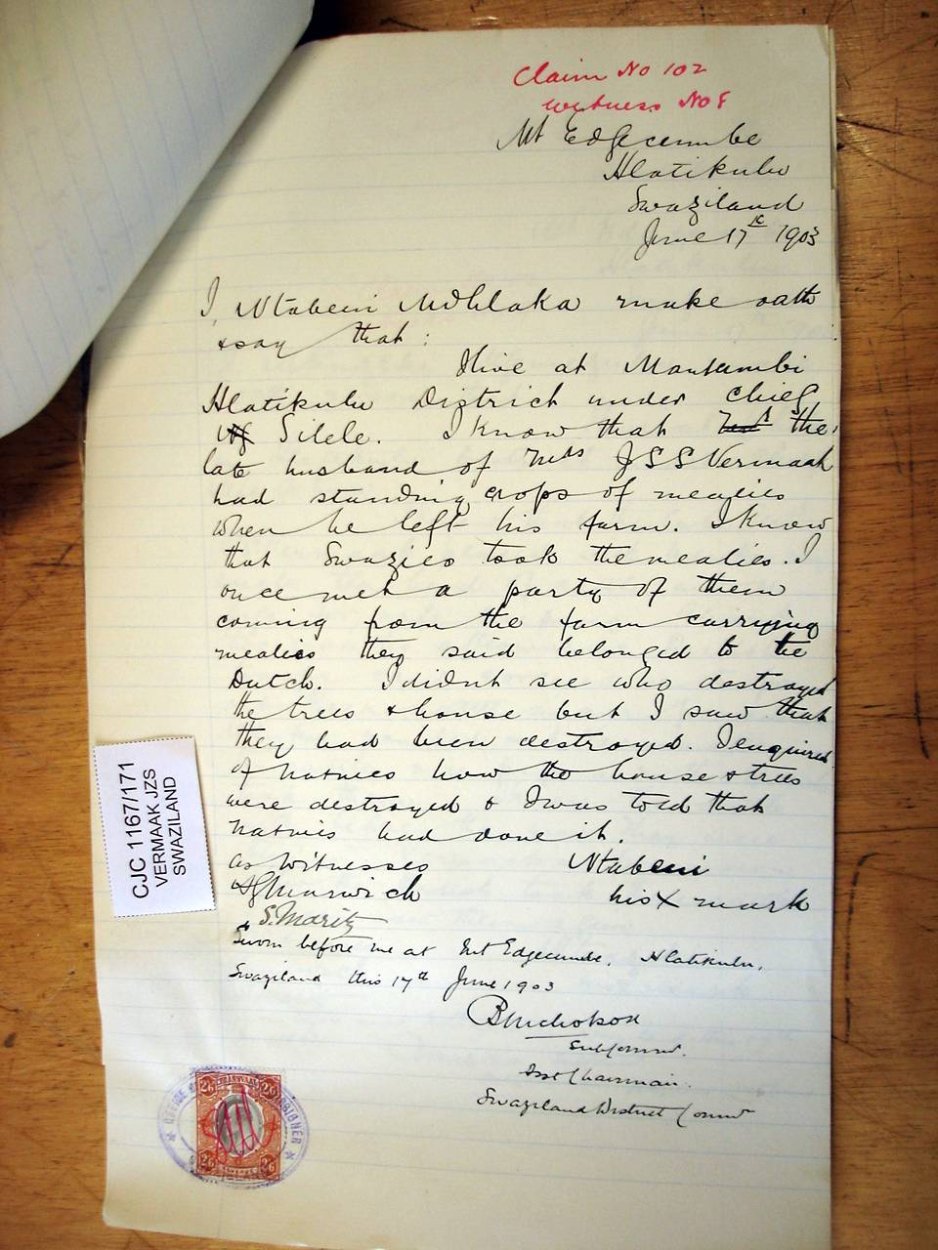 Claim No 102
Witness No 8
Mt Edgecumbe
Hlatikulu
Swaziland
June 17th 1903
I, Ntabeni Mdhlaka make oath
& say that:
I live at Mantambi
Hlatikulu District under chief
Silele. I know that the
late husband of Mrs J S S Vermaak
had standing crops of mealies
when he left his farm. I know
that Swazies took the mealies. I
once met a party of them
coming from the farm carrying
mealies they said belonged to the
Dutch. I didnt see who destroyed
the trees & house but I saw that
they had been destroyed. I enquired
of natives how the house & trees
were destroyed & I was told that
natives had done it.
As Witnesses
Ntabeni
Marwich
his X mark
S. Maritz
Sworn before me at Mt Edgecumbe, Hlatikulu,
Swaziland this 17th June 1903
B Nicholson
Sub Commr.
Asst Chairman.
Swaziland District Commr
CJC 1167/171
VERMAAK JZS
SWAZILAND
2/6 2/6
2/6 2/6